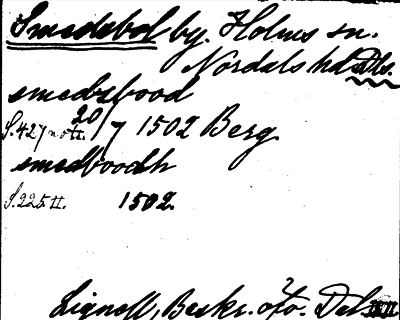 Smedsbol by. Holms sn.
Nordals hd Dls.
smedzbood
S. 427 not. 20/7 1502 Berg.
smedboodh
S. 225 II. 1502.
Lignell, Beskr. o/o. Dal III